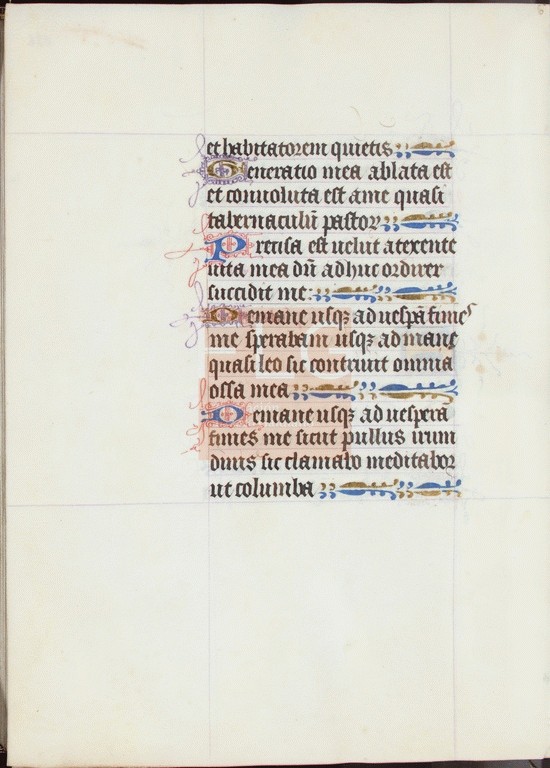 et habitatorem quietis
Generatio mea ablata est
et convoluta est ame quasi
tabernaculū pastor
Precisa est velut atexente
vita mea dū adhuc ordirer
succidit me
Demane usqꝫ ad vesp̄a finies
me sperabam usqꝫ ad mane
quasi leo sic contrivit omnia
ossa mea
Demane usqꝫ ad vespera
finies me sicut pullus irun
dinis sic clamabo meditabor
ut columba